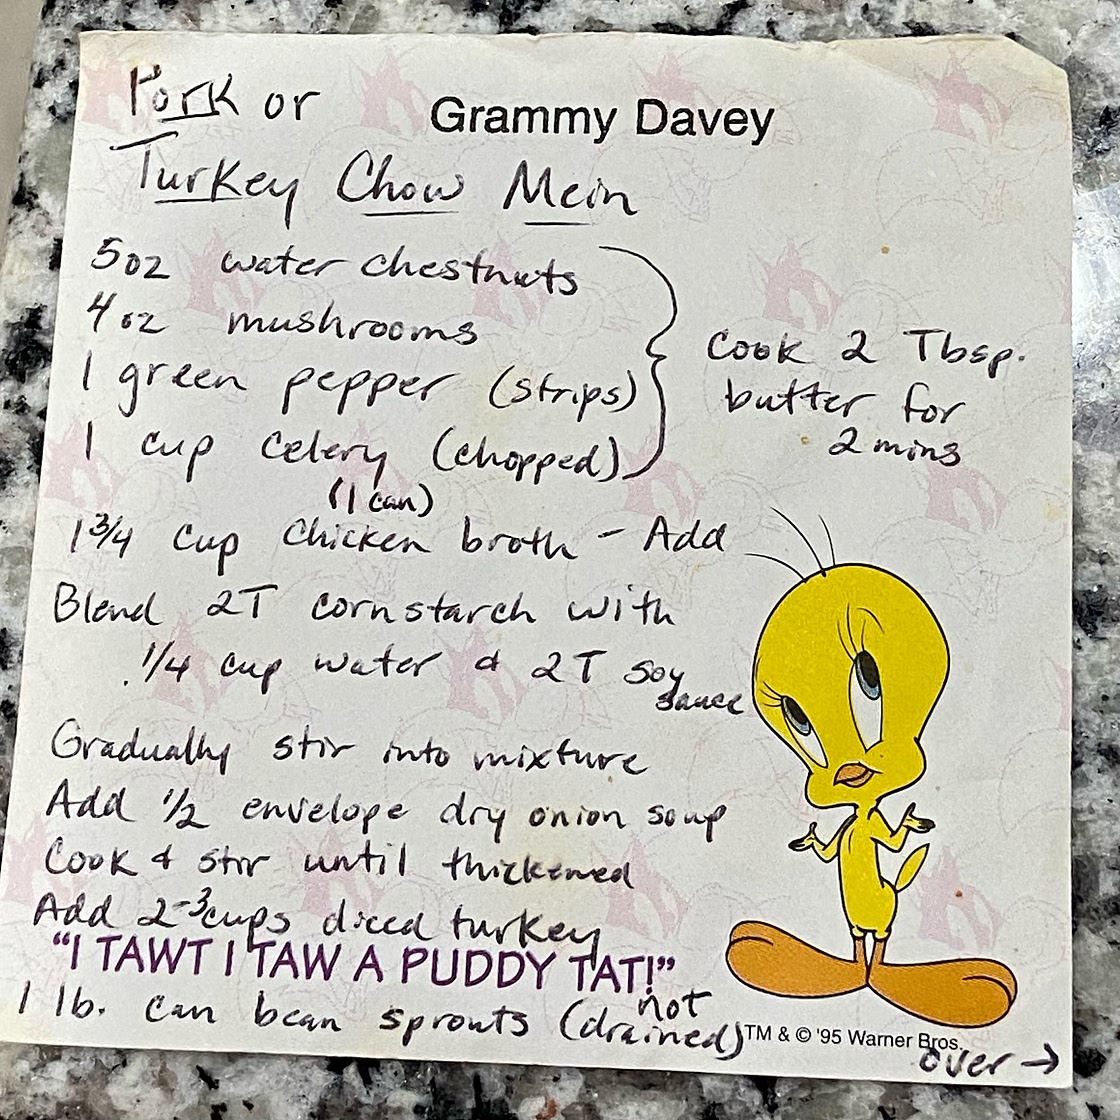 Pork or
Grammy Davey
Turkey Chow Mein
5 oz water chestnuts
4 oz mushrooms
1 green pepper (strips)
1 cup celery (chopped)
Cook 2 Tbsp.
butter for
2 mins
(1 can)
1 3/4 cup chicken broth - Add
Blend 2T cornstarch with
1/4 cup water & 2T soy
sauce
Gradually stir into mixture
Add 1/2 envelope dry onion soup
Cook & stir until thickened
Add 2-3 cups diced turkey
"I TAWT I TAW A PUDDY TAT!"
not
1 lb. can bean sprouts (drained)
TM & © '95 Warner Bros.
over →